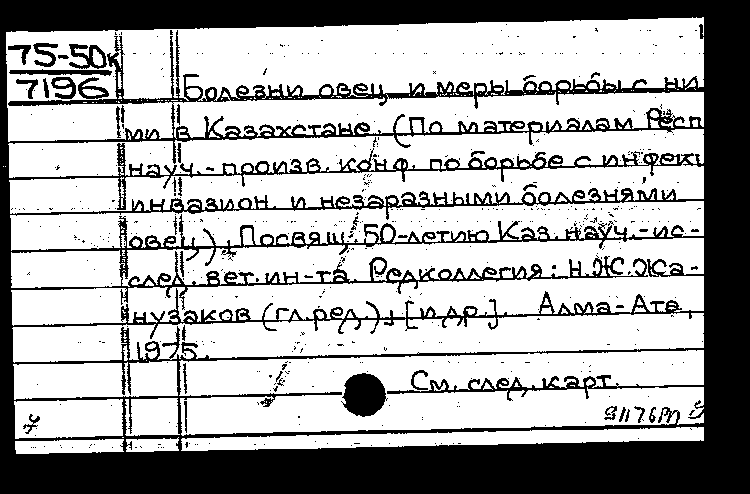 75-50к
7196
Болезни овец и меры борьбы с ни
ми в Казахстане. (По материалам Респ
науч.-произв. конф. по борьбе с инфекц
инвазион. и незаразными болезнями
овец), Посвящ. 50-летию Каз. науч.-ис-
след. вет. ин-та. Редколлегия: Н.Ж. Жа-
нузаков (гл. ред.), [и др.]. Алма-Ата,
1975.
См. след. карт.